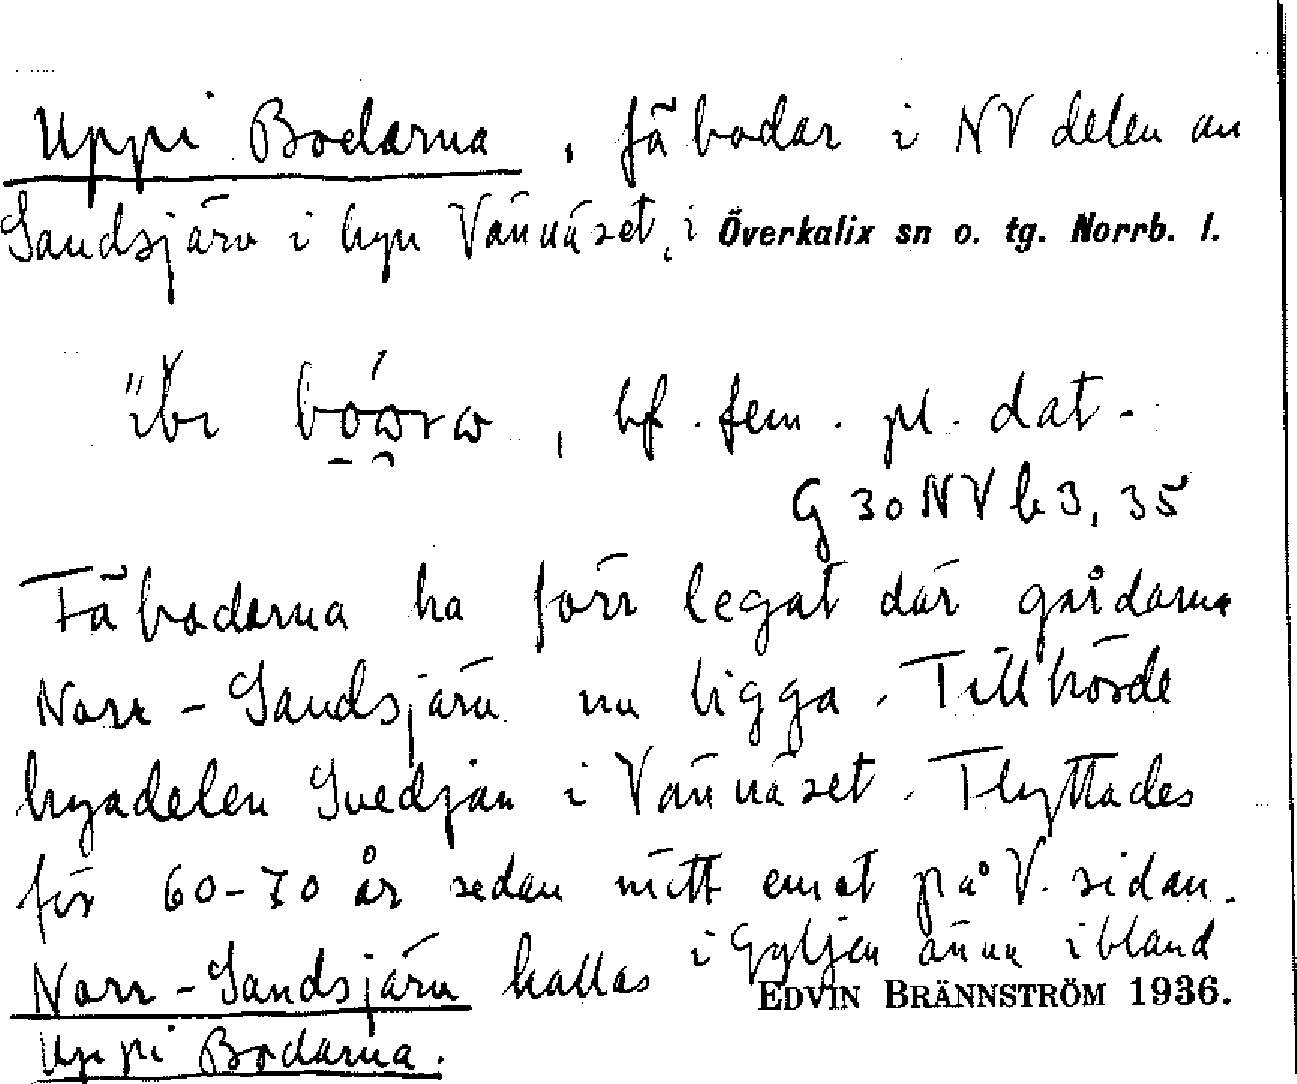 Uppi Bodarna, fäbodar i NV delen av
Sandsjärv i byn Vännäset, i Överkalix sn o. tg. Norrb. l.
bf. fem. pl. dat.
G 30 NV b 3, 35
Fäbodarna ha förr legat där gårdarna
Norr-Sandsjärv nu ligga. Tillhörde
byadelen Svedjan i Vännäset. Flyttades
för 60-70 år sedan mitt emot på V. sidan.
Norr-Sandsjärv kallas i Gyljen ännu ibland
Uppi Bodarna.
EDVIN BRÄNNSTRÖM 1936.